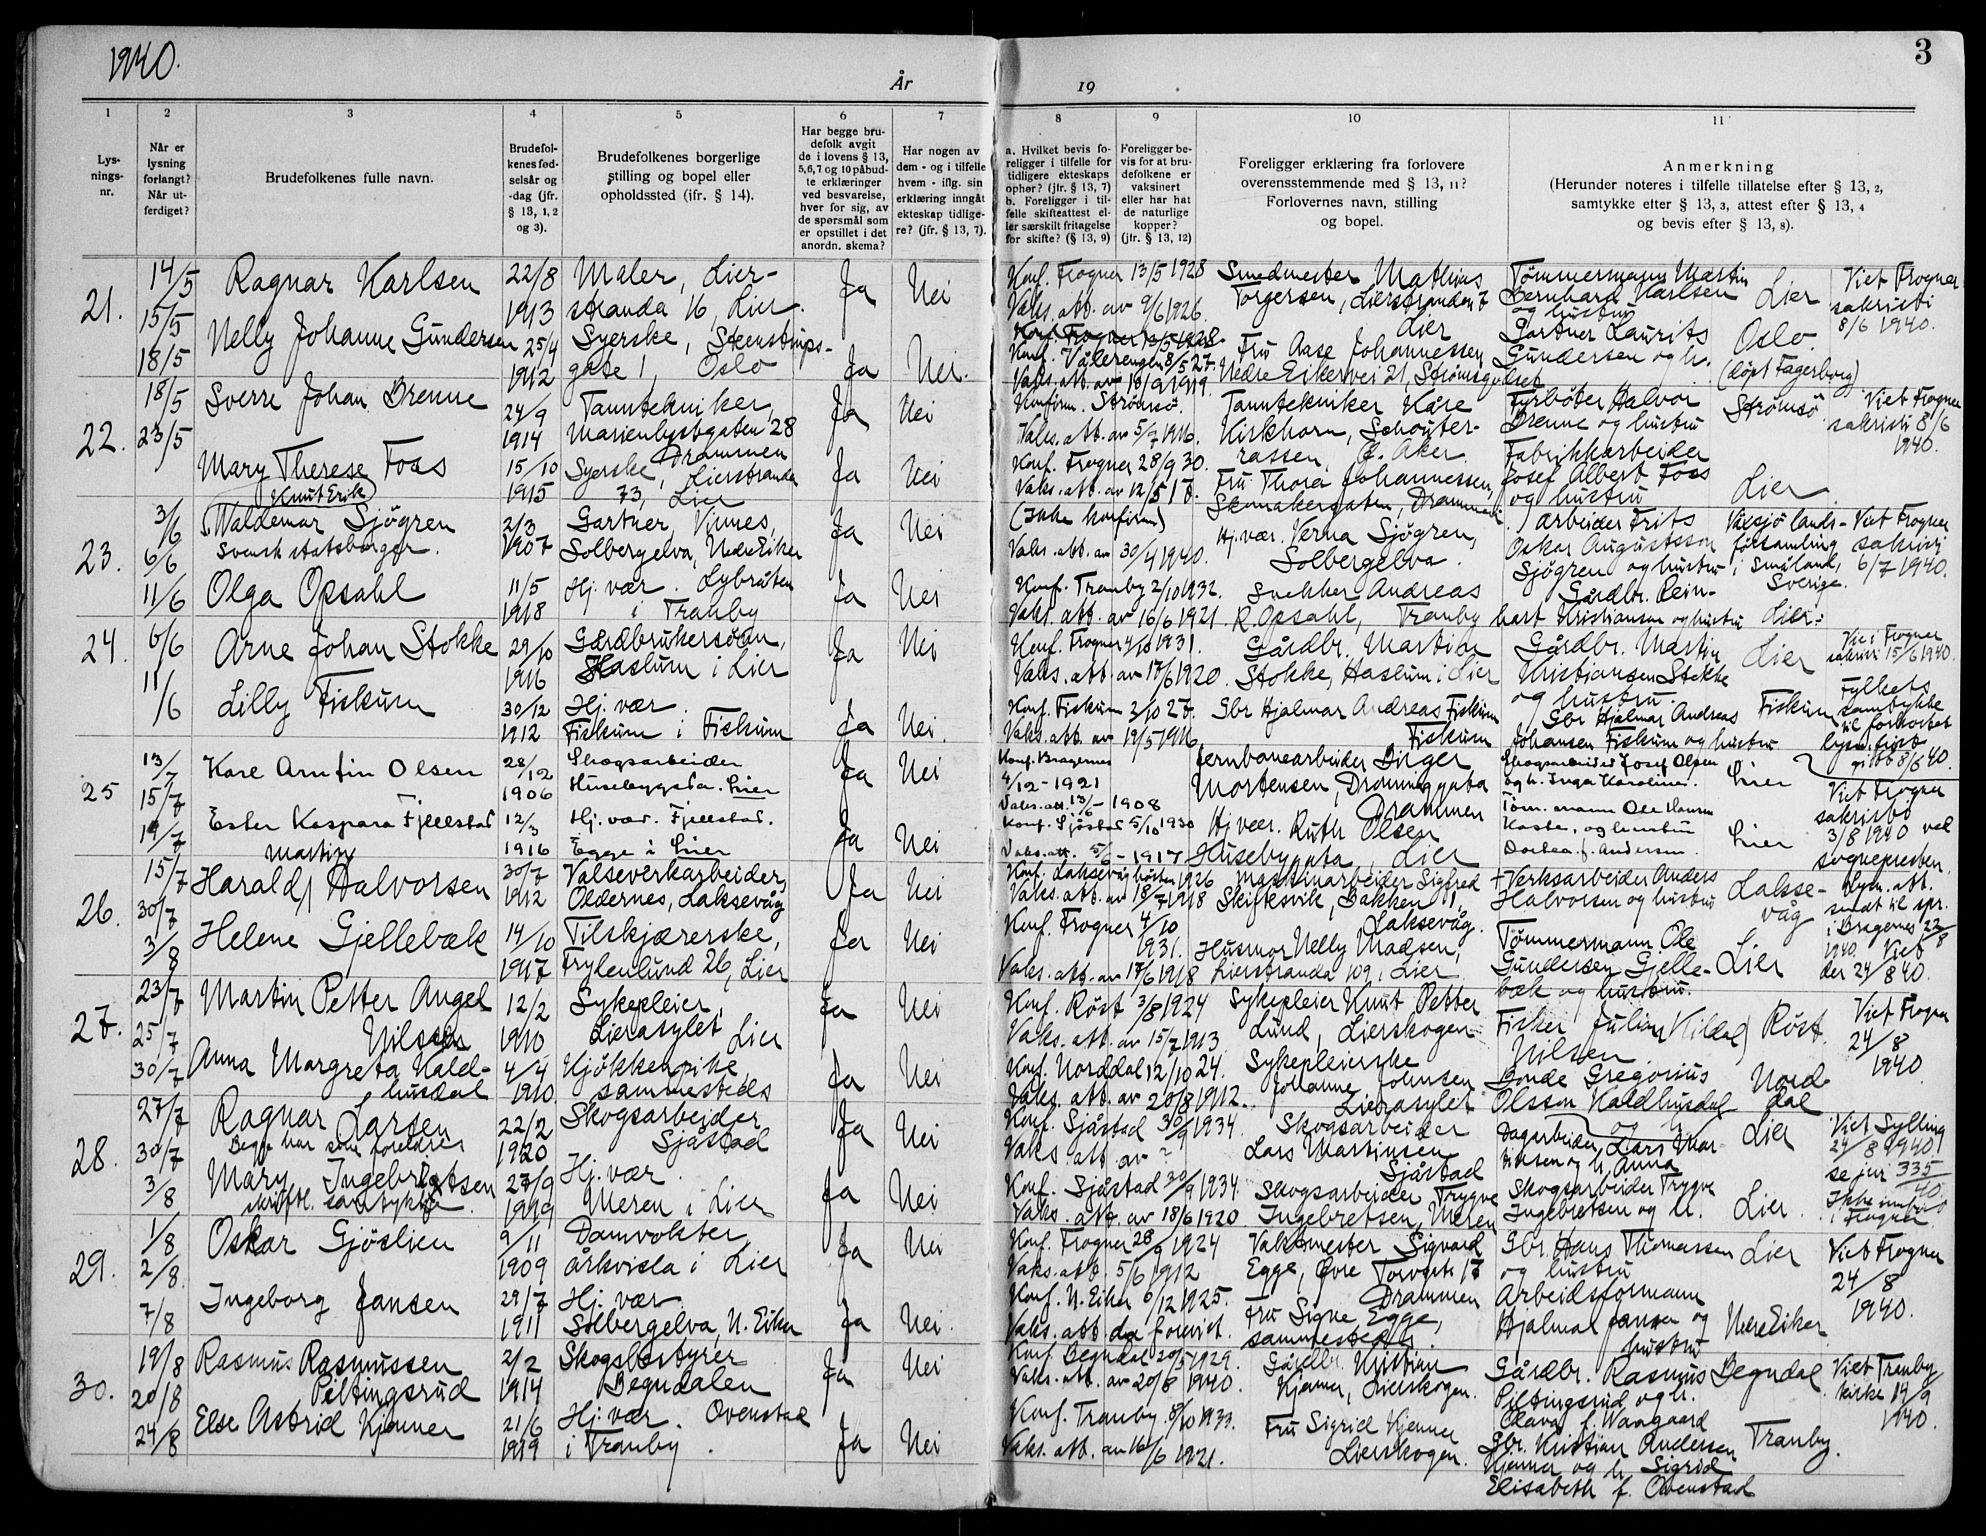 1940.
År
19
3
1
2
3
4
5
6
7
8
9
10
11
Lys-
nings-
nr.
Når er
lysning
forlangt?
Når ut-
ferdiget?
Brudefolkenes fulle navn.
Brudefol-
kenes fød-
selsår og
-dag (jfr.
§ 13, 1, 2
og 3).
Brudefolkenes borgerlige
stilling og bopel eller
opholdssted (ifr. § 14).
Har begge bru-
defolk avgit
de i lovens § 13,
5,6,7 og 10 påbud-
te erklæringer
ved besvarelse,
hver for sig, av
de spørsmål som
er opstillet i det
anordn. skema?
Har nogen av
dem - og i tilfelle
hvem - iflg. sin
erklæring inngåt
ekteskap tidlige-
re? (jfr. § 13, 7).
a. Hvilket bevis fo-
religger i tilfelle for
tidligere ekteskaps
ophør? (jfr. § 13, 7)
b. Foreligger i til-
felle skifteattest el-
ler særskilt fritagelse
for skifte? (§ 13, 9)
Foreligger be-
vis for at bru-
defolkene er
vaksinert
eller har hat
de naturlige
kopper?
(jfr. § 13, 12)
Foreligger erklæring fra forlovere
overensstemmende med § 13, 11?
Forlovernes navn, stilling
og bopel.
Anmerkning
(Herunder noteres i tilfelle tillatelse efter § 13, 2,
samtykke efter § 13, 3, attest efter § 13, 4
og bevis efter § 13, 8).
21.
14/5
15/5
18/5
Ragnar Karlsen
22/8
1913
Maler, Lier-
stranda 16, Lier.
Ja
Nei
Konf. Frogner 13/5 1928
Vaks. att. av 9/6 1926.
Smedmester Mathias
Torgersen, Lierstranden 7
Lier
Tømmermann Martin
Bernhard Karlsen
og hustru
Lier
Viet Frogner
sakristi
8/6 1940.
Nelly Johanne Gundersen
25/4
1912
Syerske, Steenstrups-
gate 1, Oslo
Ja
Nei.
Konf. Frogner 13/5 1928.
Konf. Vålerengen 8/5 27.
Vaks. att. av 18/9 1919.
Fru Aase Johannessen
Nedre Eikervei 21, Strømsgodset
Gartner Laurits
Gundersen og h.
Oslo.
(døpt Fagerborg)
22.
18/5
23/5
Sverre Johan Brenne
24/9
1914
Tanntekniker,
Marienlystgaten 28
Drammen
Ja
Nei
Konfirm. Strømsø.
Vaks. att. av 5/7 1916.
Tanntekniker Kåre
Kirkhorn, Schouter-
rassen, Ø. Aker.
Fyrbøter Halvor
Brenne og hustru
Strømsø
Viet Frogner
sakristi 8/6
1940.
Mary Therese Foss
15/10
1915
Syerske, Lierstranda
73, Lier
Ja
Nei
Konf. Frogner 28/9 30.
Vaks. att. av 12/5 17.
Fru Thora Johannessen,
Skomakergaten, Drammen
Fabrikkarbeider
Josef Albert Foss
og hustru
Lier.
23.
3/6
6/6
11/6
Knut Erik
Waldemar Sjögren
Svensk statsborger.
2/3
1907
Gartner, Vinnes,
Solbergelva, Nedre Eiker
Ja
Nei
(Ikke konfirm)
Vaks. att. av 30/4 1940.
Hj. vær. Verna Sjögren,
Solbergelva.
Arbeider Frits
Oskar Augustsson
Sjögren og hustru
Växsjö lands-
församling
i Småland,
Sverige.
Viet Frogner
sakristi
6/7 1940.
Olga Opsahl
11/5
1918
Hj. vær. Lybråten
i Tranby
Ja
Nei
Konf. Tranby 2/10 1932.
Vaks. att. av 16/6 1921.
Snekker Andreas
R. Opsahl, Tranby
Gårdbr. Rein-
hart Kristiansen og hustru
Lier.
24.
6/6
11/6
Arne Johan Stokke
29/10
1916
Gårdbrukersønn,
Haslum i Lier
Ja
Nei
Konf. Frogner 4/10 1931.
Vaks. att. av 17/6 1920.
Gårdbr. Martin
Stokke, Haslum i Lier
Gårdbr. Martin
Kristiansen Stokke
og hustru.
Lier
Vie i Frogner
sakristi 15/6 1940.
Lilly Fiskum
30/12
1912
Hj. vær.
Fiskum i Fiskum
Ja
Nei.
Konf. Fiskum 2/10 27.
Vaks. att. av 19/5 1916
Gbr Hjalmar Andreas Fiskum
Fiskum
Gbr Hjalmar Andreas
Johansen Fiskum og hustru.
Fiskum
Fylkets
samtykke
til forkortet
lysn. frist
gitt 8/6 40.
25
13/7
15/7
19/7
Kåre Arntin Olsen
28/12
1906
Skogsarbeider
Husebygata. Lier
Ja
Nei
Konf. Bragernes
4/12 - 1921
Vaks. att. 13/6 - 1908
Jernbanearbeider Birger
Mortensen, Dronninggata
Drammen
Skogsarbeider Josef Olsen
og h. Inga Karoline.
Lier
Viet Frogner
sakristi
3/8 1940 ved
sognepresten.
Ester Kaspara Fjellstad
12/3
1916
Hj. vær. Fjellstad.
Egge i Lier
Ja
Nei
Konf. Sjåstad 5/10 1930
Vaks. att. 5/6 - 1917
Hj vær. Ruth Olsen
Husebygata, Lier
Tøm. mann Ole Hansen
Kaste, og hustru
Dorthea f. Andersen.
Lier
26.
15/7
30/7
3/8
Martin
Harald Halvorsen
30/7
1912
Valseverkarbeider,
Oldernes, Laksevåg
Ja
Nei
Konf. Laksevåg høsten 1926
Vaks. att. av 18/7 1918
Maskinarbeider Sigfred
Skiftesvik, Bakken 11,
Laksevåg.
Verksarbeider Anders
Halvorsen og hustru
Lakse-
våg
Lysn. att.
sendt til spr.
i Bragernes 22/8
1940. Viet
der 24/8 40.
Helene Gjellebæk
14/10
1917
Tilskjærerske,
Frylenlund 26, Lier
Ja
Nei
Konf. Frogner 4/10
1931.
Vaks. att. av 17/6 1918
Husmor Nelly Madsen,
Lierstranda 109, Lier
Tømmermann Ole
Gundersen Gjelle-
bæk og hustru.
Lier
27.
23/7
25/7
30/7
Martin Petter Angel
Nilsen
12/2
1910
Sykepleier,
Lierasylet Lier
Ja
Nei
Konf. Røst 3/8 1924
Vaks. att. av 15/7 1913
Sykepleier Knut Petter
Lund, Lierskogen
Fisker Julian (Kildal)
Nilsen
Røst.
Viet Frogner
24/8
1940.
Anna Margreta Kald-
husdal
4/4
1910
Kjøkkenpike,
sammesteds
Ja
Nei
Konf. Norddal 12/10 24.
Vaks. att. av 20/8 1912.
Sykepleierske
Johanne Johnsen
Lierasylet
Bonde Gregorius
Olsson Kaldhusdal
og h.
Nord-
dal
28.
27/7
30/7
3/8
Ragnar Larsen
Begge har sine foreldres
22/2
1920
Skogsarbeider
Sjåstad
Ja
Nei
Konf. Sjåstad 30/9 1934.
Vaks. att. av ?
Skogsarbeider
Lars Martinsen
Sjåstad
Dagarbeider Lars Mar-
tinsen og h. Anna
Lier
Viet Sylling
24/8 1940
se jnr 335/40
Ikke innført
i Frogner
Mary Ingebretsen
skriftl. samtykke.
27/9
1919
Hj. vær.
Meren i Lier
Ja
Nei
Konf. Sjåstad 30/9 1934.
Vaks. att. av 18/6 1920
Skogsarbeider Trygve
Ingebretsen, Meren
Skogsarbeider Trygve
Ingebretsen og h.
Lier.
29.
1/8
2/8.
7/8
Oskar Gjøslien
9/11
1909
Damvokter
Årkvisla i Lier
Ja
Nei
Konf. Frogner 28/9 1924
Vaks. att. 5/6 1912
Vaktmester Sigvard
Egge, Øvre Torvgt. 17
Drammen
Gbr. Hans Thomassen
og hustru
Lier
Viet Frogner
24/8
1940.
Ingeborg Jansen
29/7
1911
Hj. vær.
Solbergelva, N. Eiker
Ja
Nei.
Konf. N. Eiker 6/12 1925.
Vaks. att. da forevist.
Fru Signe Egge,
sammesteds.
Arbeidsformann
Hjalmar Jansen og
hustru
Nedre Eiker
30.
19/8
20/8
24/8
Rasmus Rasmussen
Piltingsrud
2/2
1914
Skogsbestyrer
Begndalen
Ja
Nei
Konf. Begndal 20/5 1929.
Vaks. att. av 20/8 1940.
Gårdbr. Kristian
Kjenner, Lierskogen.
Gårdbr. Rasmus
Piltingsrud og h.
Olava f. Waagaard
Begndal
Viet Tranby
kirke 14/9
1940.
Else Astrid Kjenner
21/6
1919
Hj. vær. Ovenstad
i Tranby.
Ja
Nei
Konf. Tranby 8/10 1933.
Vaks. att. av 16/6 1921.
Fru Sigrid Kjenner
Lierskogen.
Gbr. Kristian Andersen
Kjenner og h. Sigrid
Elisabeth f. Ovenstad
Tranby.